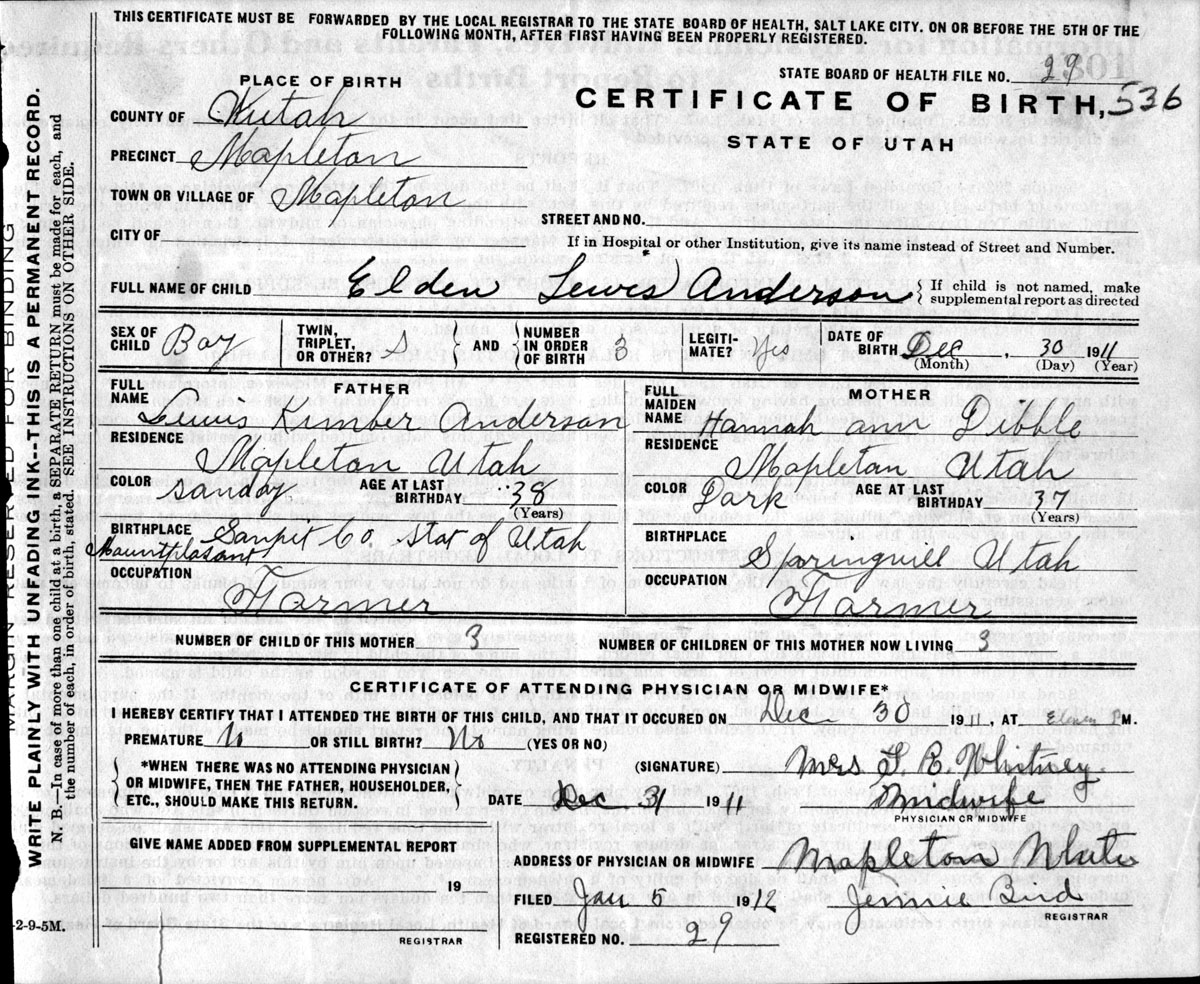 THIS CERTIFICATE MUST BE FORWARDED BY THE LOCAL REGISTRAR TO THE STATE BOARD OF HEALTH, SALT LAKE CITY. ON OR BEFORE THE 5TH OF THE
FOLLOWING MONTH, AFTER FIRST HAVING BEEN PROPERLY REGISTERED.
STATE BOARD OF HEALTH FILE NO. 29
PLACE OF BIRTH
CERTIFICATE OF BIRTH, 536
STATE OF UTAH
COUNTY OF Utah
PRECINCT Mapleton
TOWN OR VILLAGE OF Mapleton
STREET AND NO.
CITY OF
If in Hospital or other Institution, give its name instead of Street and Number.
FULL NAME OF CHILD Elden Lewis Anderson { If child is not named, make
supplemental report as directed
SEX OF CHILD Boy TWIN, TRIPLET, OR OTHER? S } AND { NUMBER IN ORDER OF BIRTH 3 LEGITI-MATE? Yes DATE OF BIRTH Dec, 30 1911
(Month) (Day) (Year)
FULL NAME FATHER
Lewis Kimber Anderson
RESIDENCE
Mapleton Utah
COLOR Sanday AGE AT LAST BIRTHDAY: 38
(Years)
BIRTHPLACE Sanpit Co. Stat of Utah
Mountplasant
OCCUPATION
Farmer
FULL MAIDEN NAME MOTHER
Hannah ann Dibble
RESIDENCE
Mapleton Utah
COLOR Dark AGE AT LAST BIRTHDAY 37
(Years)
BIRTHPLACE
Springvill Utah
OCCUPATION
Farmer
NUMBER OF CHILD OF THIS MOTHER 3 NUMBER OF CHILDREN OF THIS MOTHER NOW LIVING 3
CERTIFICATE OF ATTENDING PHYSICIAN OR MIDWIFE*
I HEREBY CERTIFY THAT I ATTENDED THE BIRTH OF THIS CHILD, AND THAT IT OCCURED ON Dec 30 1911, AT Eleven P M.
PREMATURE No OR STILL BIRTH? No (YES OR NO)
{ *WHEN THERE WAS NO ATTENDING PHYSICIAN
OR MIDWIFE, THEN THE FATHER, HOUSEHOLDER,
ETC., SHOULD MAKE THIS RETURN. }
(SIGNATURE) Mrs Whitney.
DATE Dec. 31 1911 Midwife
PHYSICIAN OR MIDWIFE
GIVE NAME ADDED FROM SUPPLEMENTAL REPORT
19
REGISTRAR
ADDRESS OF PHYSICIAN OR MIDWIFE Mapleton
FILED Jan 5 1912 Jennie Bird
REGISTRAR
REGISTERED NO. 29
2-9-5M.
MARGIN RESERVED FOR BINDING
WRITE PLAINLY WITH UNFADING INK--THIS IS A PERMANENT RECORD.
N. B.--In case of more than one child at birth, a SEPARATE RETURN must be made for each, and
the number each, in order of birth, stated. SEE INSTRUCTIONS ON OTHER SIDE.